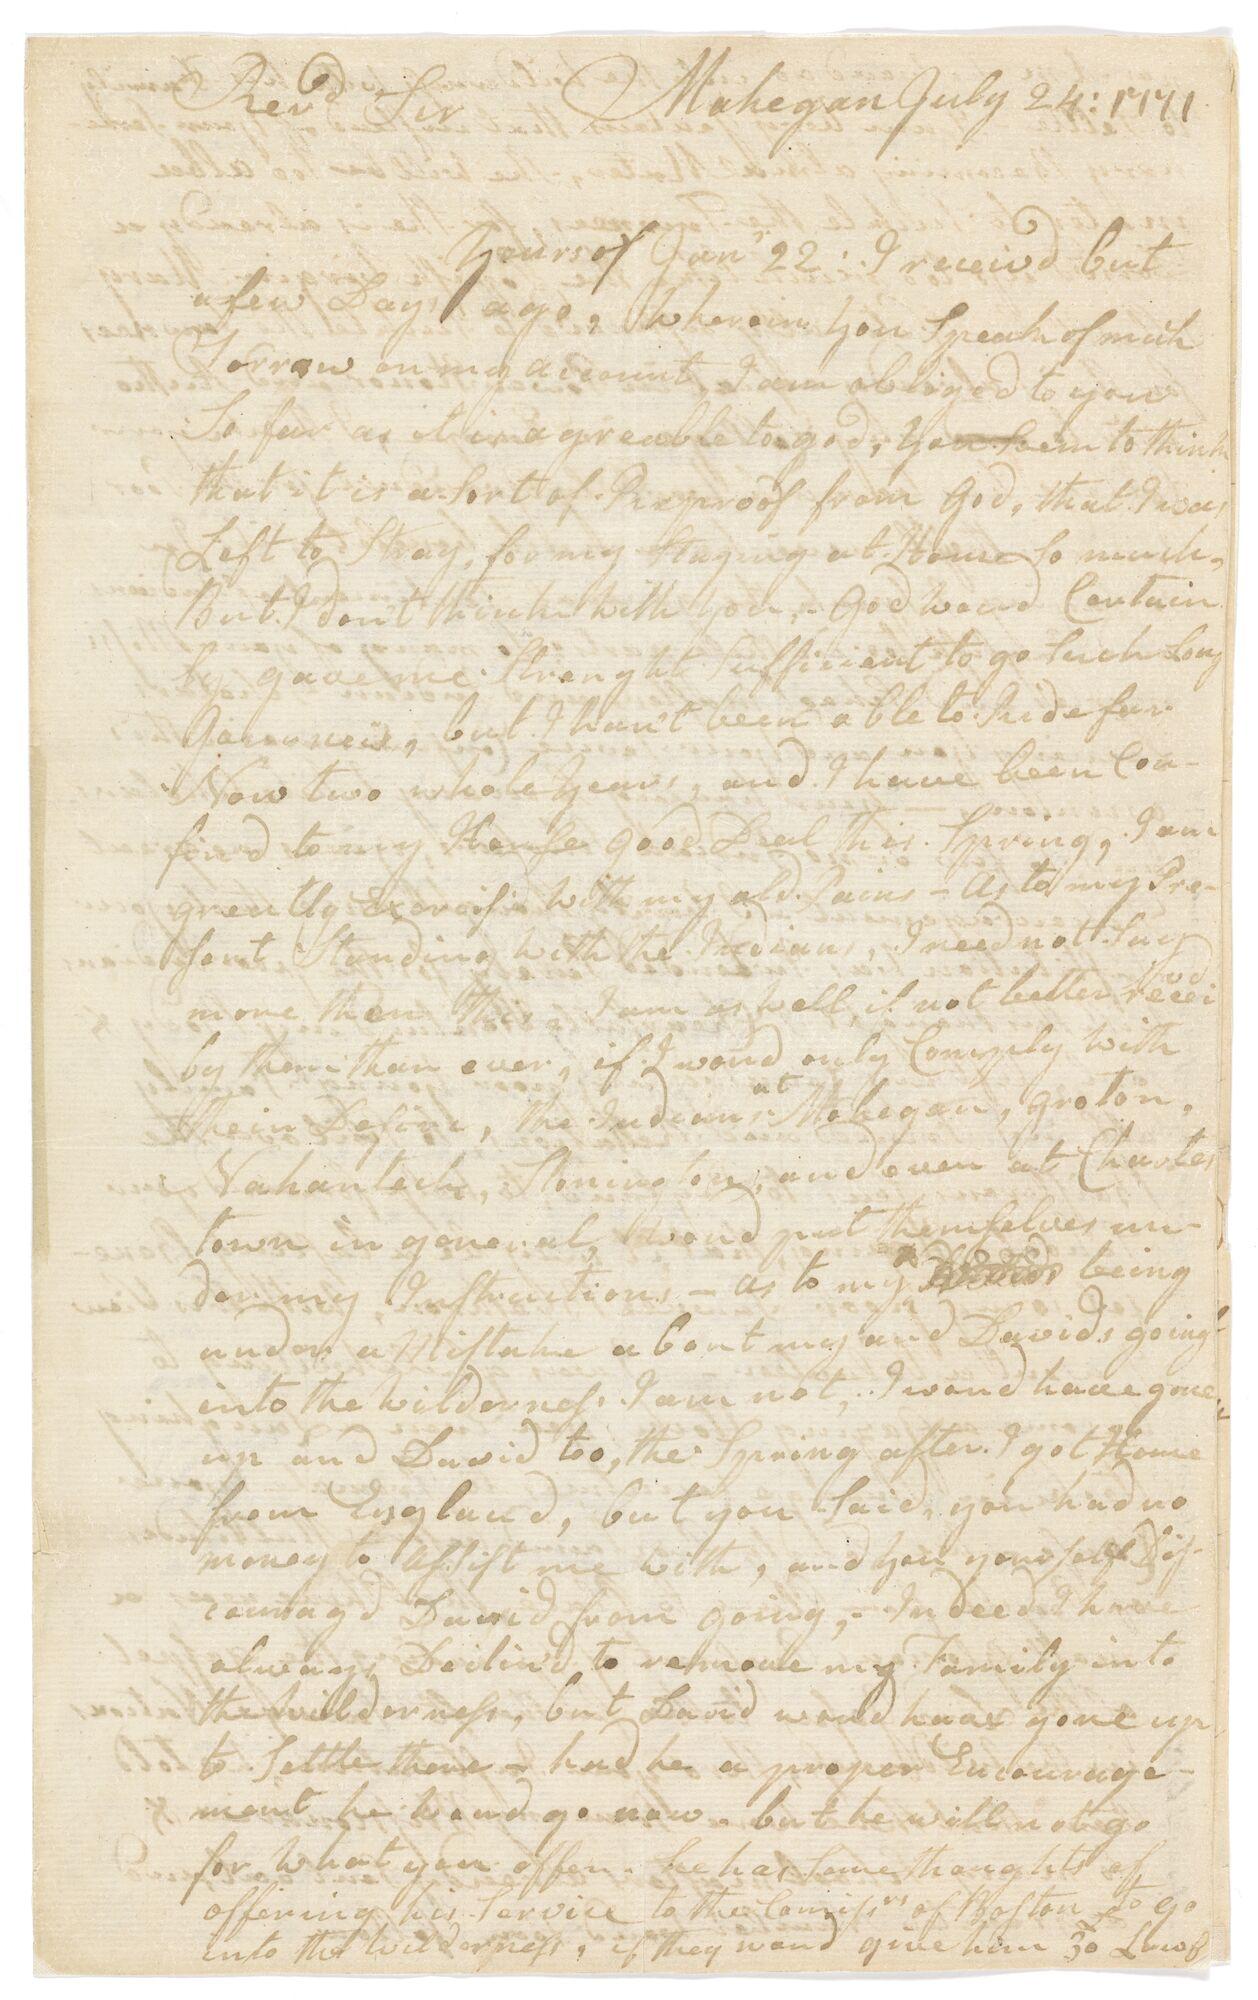 Revd Sir Mahegan July 24: 1771
Yours of Janr 22: I receivd but
a few Days ago, wherein you Speak of much
Sorrow on my account, I am obliged to you
So far as it is agreable to god, you Seem to think
that it is a Sort of Reproof from God, that I was
Left to Stray, for my Staying at Home So much,
But I don't think with you,- God woud Certain
ly gave me Strenght Sufficient to go Such Long
but I han't been able to Ride far
Now two whole years, and I have been Con-
find to my House good Deal this Spring, I am
greatly Exercisd with my old Pains - as to my Pre-
sent Standing with the Indians, I need not Say
more than this, I am as well if not better receivd
by them than ever, if I woud only Comply with
their Desire, the Indians at Mohegan, groton,
Nahantick, Stonington, and even at Charles
town in general, woud put themselves un-
der my Instructions - as to my being
under a Mistake about my and Davids going
into the wilderness I am not, I woud have gone
up and David too, the Spring after I got Home
from England, but you Said, you had no
money to assist me with, and you yourself Dis-
couragd David from going,- Indeed I have
always Declind to remove my Family into
the wilderness, but David woud have gone up
to Settle there - had he a proper Encourage-
ment he woud go now. but he will not go
for what you offer - he has Some thoughts of
offering his Service to the Comissrs of Boston to go
into the wilderness, if they woud give him 30 Law£